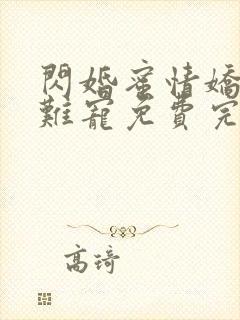 閃婚蜜情嬌
難寵免費完
高琦